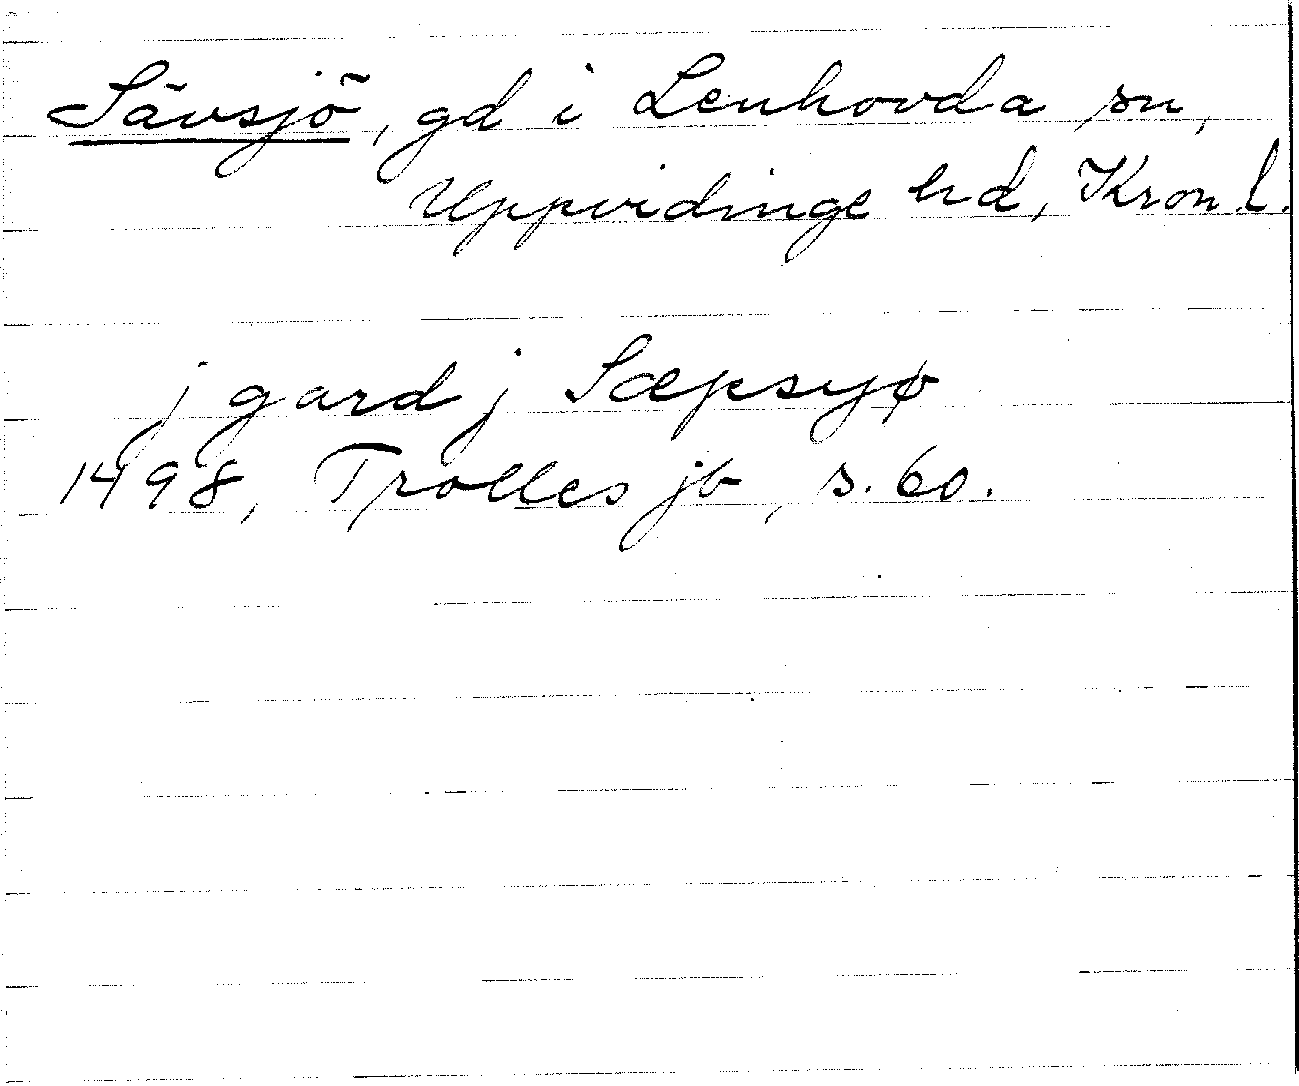 Sävsjö, gd i Lenhovda sn,
Uppvidinge hd, Kron. l.
j gard j Sæpsyø
1498, Trolles jb, s. 60.